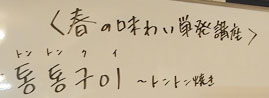 〈春の味わい単発講座〉
トントンクイ
통통구이 ～トントン焼き